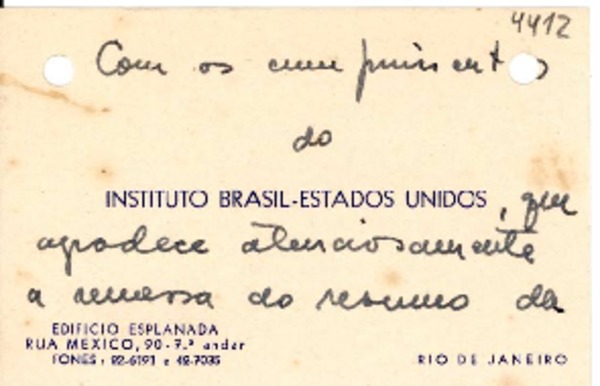 4412
Com os cumprimentos
do
INSTITUTO BRASIL-ESTADOS UNIDOS, que
agradece atenciosamente
a remessa do resumo da
EDIFICIO ESPLANADA
RUA MEXICO, 90 - 7.º andar
FONES: 22-6191 e 42-7035
RIO DE JANEIRO